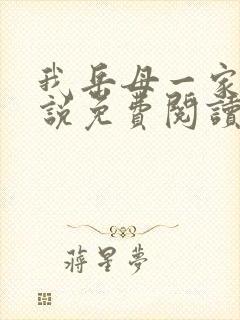 我岳母一家
說免費閱讀
蔣星夢